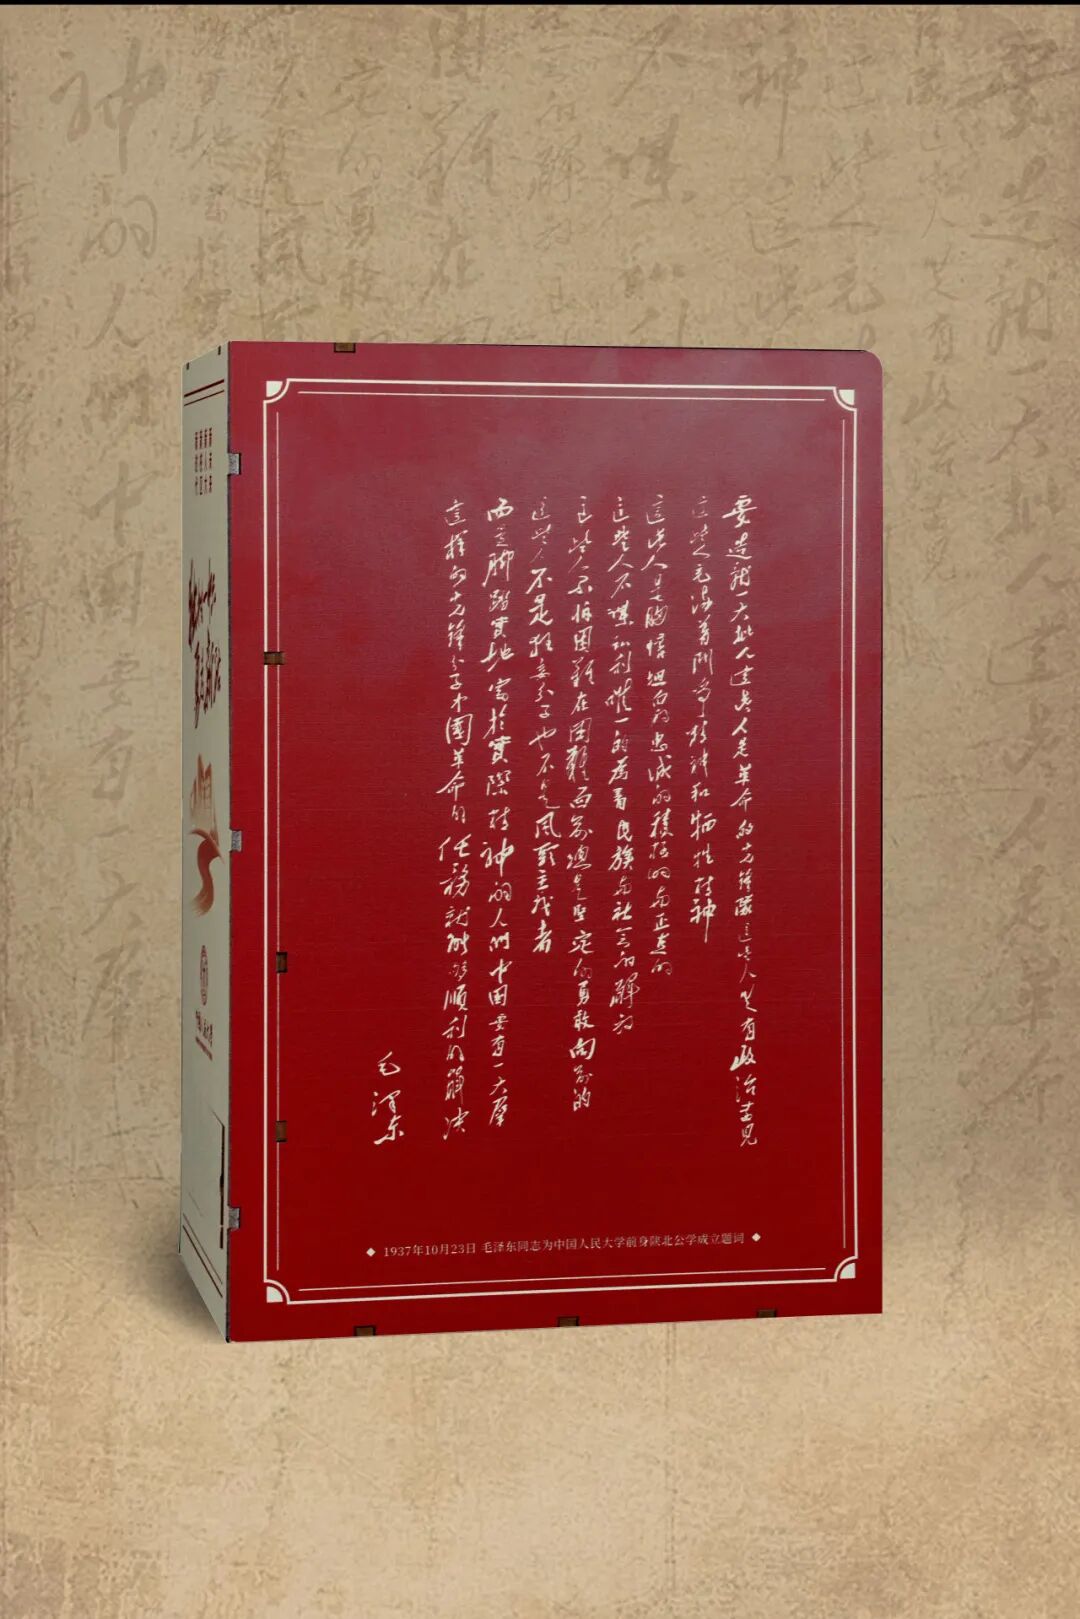 要造就一大批人這些人是革命的先鋒隊這些人具有政治遠見
這些人充满着鬥爭精神和牺牲精神
這些人是胸懷坦白的忠誠的積極的與正直的
這些人不謀私利唯一的為着民族與社会的解放
這些人不怕困難在困難面前總是堅定的勇敢向前的
這些人不是狂妄分子也不是風頭主義者
而是腳踏實地富於實際精神的人們中国要有一大羣
這樣的先鋒分子中國革命的任務就能夠順利的解決
毛澤东
1937年10月23日 毛泽东同志为中国人民大学前身陕北公学成立题词
中国人民大学